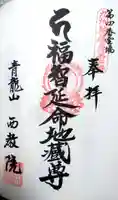 第四番霊場
奉拝
福智延命地蔵尊
青龍山
西教院